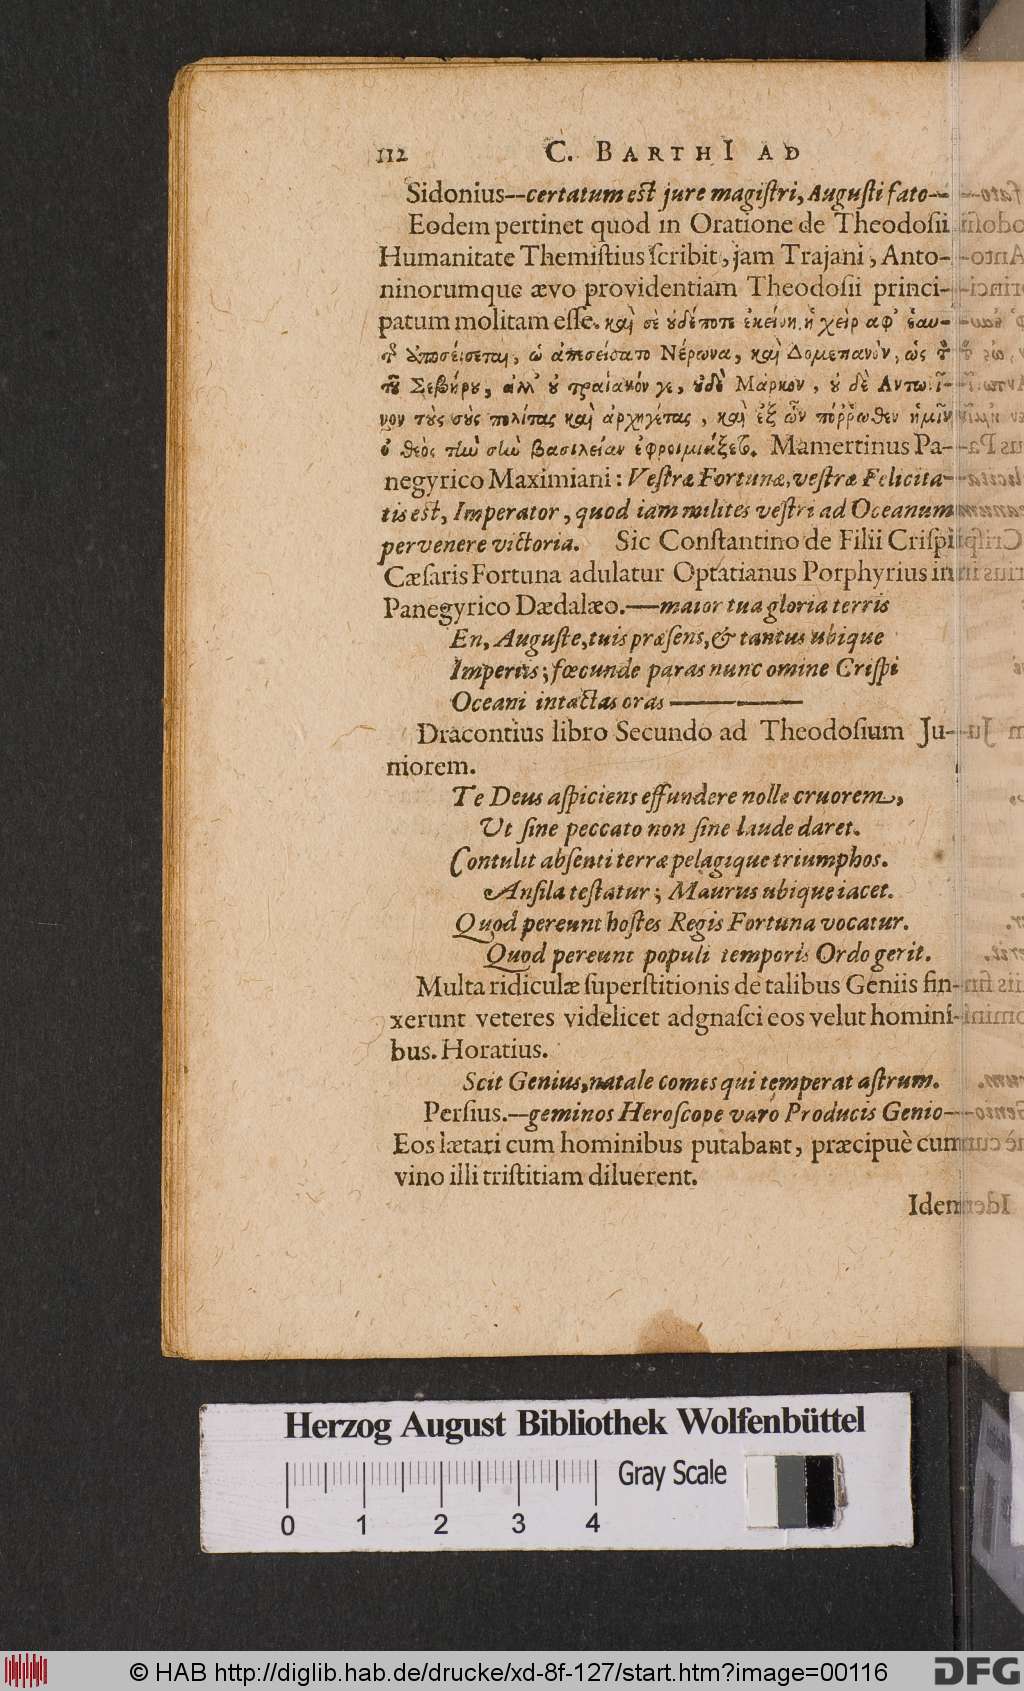 112 C. BARTHI AD
Sidonius--certatum est jure magiſtri, Auguſti fato--
Eodem pertinet quod in Oratione de Theodoſii
Humanitate Themiſtius ſcribit, jam Trajani, Anto-
ninorumque ævo providentiam Theodoſii princi-
patum molitam eſſe. καὶ σὲ οὐδέποτε ἐκείνη ἡ χεὶρ ἀφ' ἑαυ-
τ ἀποσείσεται, ᾧ ἀπεσείσατο Νέρωνα, καὶ Δομετιανὸν, ὡς
τοῦ Σεβήρου, ἀλλ' οὐ τραϊανόν γε, οὐδὲ Μάρκον, οὐ δὲ Αντωνῖ-
νον τοὺς σοὺς πολίτας καὶ ἀρχηγέτας, καὶ ἐξ ὧν πόῤῥωθεν ἡμῖν
ὁ θεὸς τὴν σὴν βασιλείαν ἐφροιμιάζετο. Mamertinus Pa-
negyrico Maximiani: Veſtræ Fortunæ, veſtræ Felicita-
tis est, Imperator, quod iam milites veſtri ad Oceanum
pervenere victoria. Sic Conſtantino de Filii Criſpi
Cæſaris Fortuna adulatur Optatianus Porphyrius in
Panegyrico Dædalæo.—maior tua gloria terris
En, Auguſte, tuis præſens, & tantus ubique
Imperiis; fœcunde paras nunc omine Criſpi
Oceani intactas oras ———
Dracontius libro Secundo ad Theodoſium Ju-
niorem.
Te Deus aſpiciens effundere nolle cruorem,
Ut ſine peccato non ſine laude daret.
Contulit abſenti terræ pelagique triumphos.
Anſila teſtatur; Maurus ubique iacet.
Quod pereunt hoſtes Regis Fortuna vocatur.
Quod pereunt populi temporis Ordo gerit.
Multa ridiculæ ſuperſtitionis de talibus Geniis fin-
xerunt veteres videlicet adgnaſci eos velut homini-
bus. Horatius.
Scit Genius, natale comes qui temperat aſtrum.
Perſius.—geminos Horoſcope varo Producis Genio—
Eos lætari cum hominibus putabant, præcipuè cum
vino illi triſtitiam diluerent.
Idem
Herzog August Bibliothek Wolfenbüttel
Gray Scale
0 1 2 3 4
© HAB http://diglib.hab.de/drucke/xd-8f-127/start.htm?image=00116
DFG